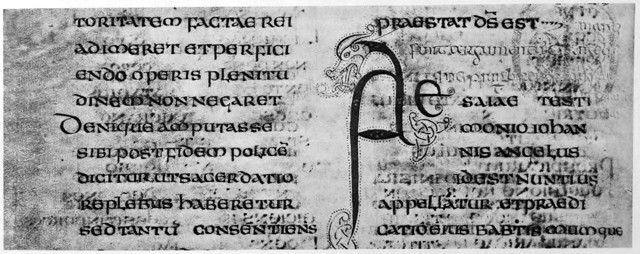 toritatem factae rei
adimeret et perfici
endo operis plenitu
dinem non negaret
Denique amputasse
sibi post fidem policē
dicitur ut sacerdotio
reprobus haberetur
sed tantū consentiens
praestat d̄s est
finit argumentum
Ae
saiae testi
monio iohan
nis angelus
id est nuntius
appellatur et praedi
catio eius babtismumque